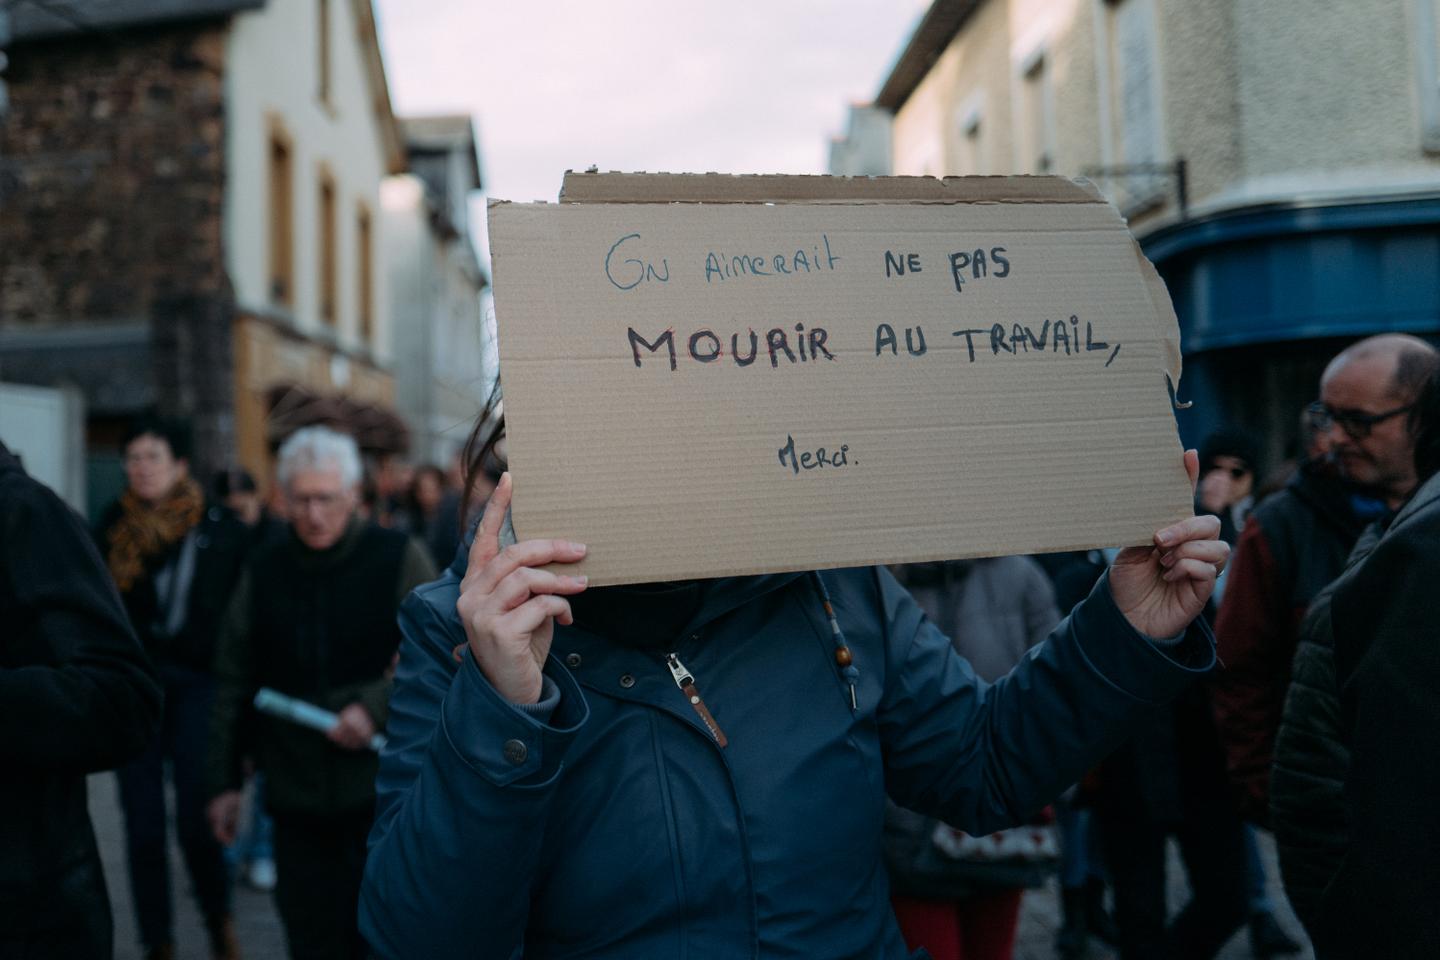 On aimerait NE PAS
MOURIR AU TRAVAIL,
Merci.